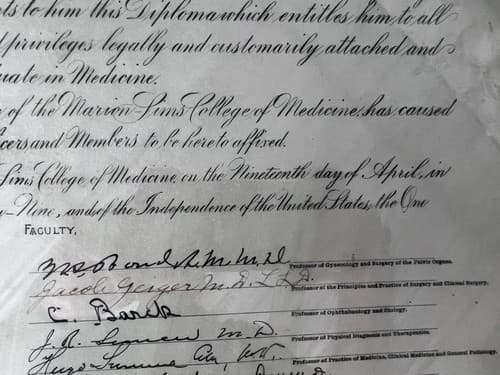 ts to him this Diploma which entitles him to all
privileges legally and customarily attached and
uate in Medicine.
of the Marion-Sims College of Medicine, has caused
cers and Members to be hereto affixed.
Sims College of Medicine, on the Nineteenth day of April, in
y-Nine, and of the Independence of the United States the One
FACULTY,
M.D. Professor of Gynecology and Surgery of the Pelvic Organs.
Jacob Geiger M.D. LL.D. Professor of the Principles and Practice of Surgery and Clinical Surgery.
C. Barck Professor of Ophthalmology and Otology.
J. R. M.D. Professor of Physical Diagnosis and Therapeutics.
Hugo Summa M.D. Professor of Practice of Medicine, Clinical Medicine and General Pathology.